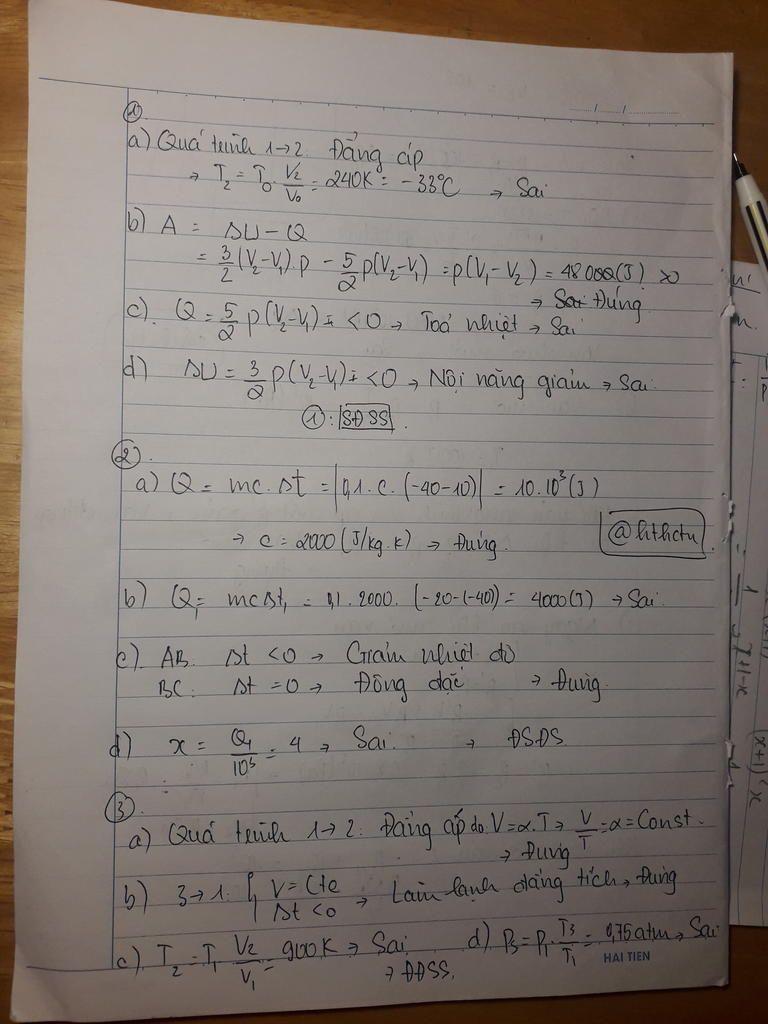 ①
a) Quá trình 1→2: Đẳng áp
→ T₂ = T₀ . V₂/V₀ = 240K = -33°C → Sai
b) A = ΔU - Q
= 3/2 (V₂-V₁).p - 5/2 p(V₂-V₁) = p(V₁-V₂) = 48000(J) >0
→ Đúng
c). Q = 5/2 p(V₂-V₁) <0 → Toả nhiệt → Sai
d) ΔU = 3/2 p(V₂-V₁) <0 → Nội năng giảm → Sai.
①: SĐSS.
②
a) Q = mc.Δt = |0,1.c.(-40-10)| = 10.10³(J)
→ c = 2000 (J/kg.K) → Đúng.
@hthctu
b) Q₁ = mcΔt₁ = 0,1.2000.(-20-(-40)) = 4000(J) → Sai.
c). AB: Δt <0 → Giảm nhiệt độ
BC: Δt =0 → Đông đặc → Đúng.
d) x = Q₁/10³ = 4 → Sai. → ĐSĐS
③
a) Quá trình 1→2: Đẳng áp do V=α.T → V/T = α = Const.
→ Đúng
b) 3→1: { V = Cte
Δt <0 → Làm lạnh đẳng tích → Đúng
c). T₂ = T₁ V₂/V₁ = 900K → Sai d) P₃ = P₁.T₃/T₁ = 0,75atm → Sai
→ ĐĐSS.
HAI TIEN